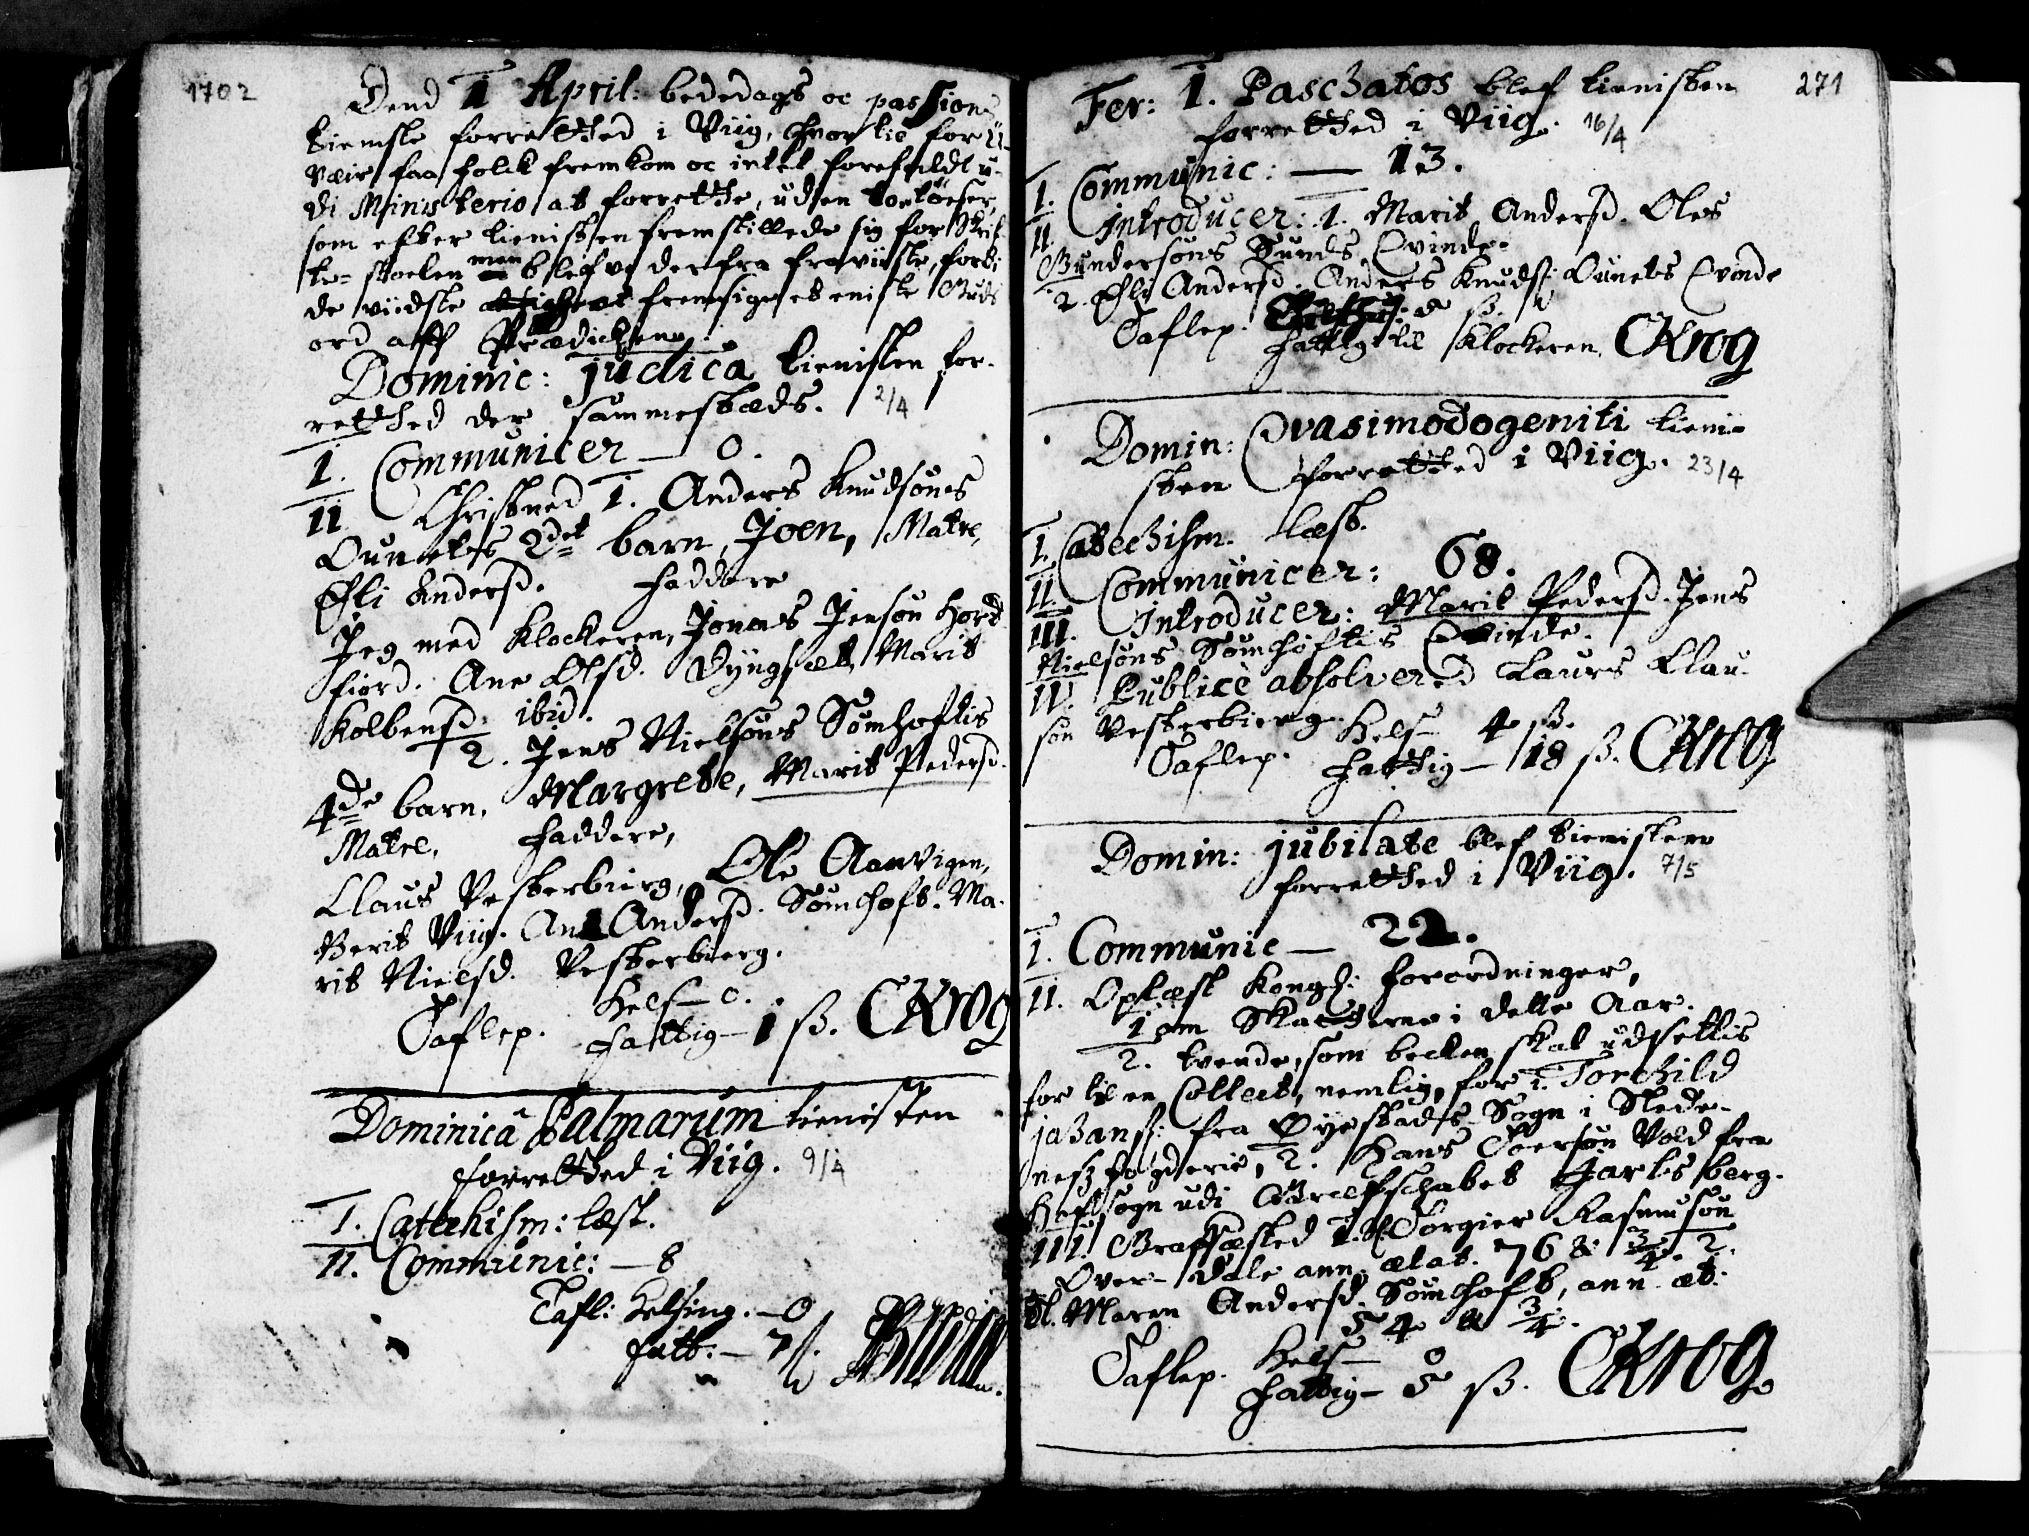 1702
Dend 1 April: bededags oc passions
tieniste forretted i Viig, hvor til for U-
veir faa folk fremkom oc intet forefaldt u-
di Ministerio at forrette, uden
som efter tienisten fremstillede sig for Skrif-
te-stoelen men blef derfra fraviiste, fordi
de viidste fremsige et eniste Guds
ord aff Prædickenen.
Dominic: judica tienisten for-
retted der sammestæds. 2/4
I. Communicer — 0.
II Christned 1. Anders Knudsöns
Ounetes 2det barn, Joen, Matre,
Esli Andersd. Faddere
Jeg med Klockeren, Jonas Jensön Hord-
fiord. Ane Olsd. Dyngsæt, Marit
Kolbensd. ibid.
2. Jens Nielsöns Sömhoftis
4de barn, Margrete, Marit Pedersd.
Matre, Faddere,
Claus Vesterbierg, Ole Aanvigen,
Berit Viig. Ane Andersd. Sömhoft. Ma-
rit Nielsd. Vesterbierg.
Taflep. Hels — 0.
Fattig — 1 ß. CKrog
Dominica Palmarum tienisten
forretted i Viig. 9/4
I. Catechism: læst.
II. Communic: — 8
Tafl: Helsing. — 0
fatt: — 7 ß.
271
Fer: 1. Paschatos blef tienisten
forretted i Viig. 16/4
I. Communic: — 13.
II. Introducer: 1. Marit Andersd. Oles
Gundersöns Sunds Qvinde.
2. Esli Andersd. Anders Knuds: Ounets Qvinde
Taflep. ß.
Fattig til Klockeren. CKrog
Domin: Qvasimodogeniti tieni-
sten forretted i Viig. 23/4
I. Catechism. læst.
II. Communicer: 68.
III. Introducer: Marit Pedersd. Jens
Nielsöns Sömhöftis Qvinde.
IV. Publicè absolvered Laurs Clau-
sön Vesterbierg.
Taflep. Hels — 4 ß.
Fattig — 18 ß. CKrog
Domin: jubilate blef tienisten
forretted i Viig. 7/5
I. Communic — 22.
II. Oplæst Kongl: forordninger,
1 om Skatterne i dette Aar.
2. tvende, som becken skal udsettis
for til en Collect, nemlig, for 1. Torchild
jahans: fra Øyestads Sogn i Nede-
neß fogderie, 2. Hans Toersön Vold fra
Hof sogn udi Grefschabet Jarlsberg.
III. Grafsæsted 1. Torgier Rasmusön
Over-Dale ann. ætat. 76 & 3/4. 2.
Maren Andersd. Sömhoft, ann. æt.
54 & 3/4.
Taflep. Hels — 0
Fattig — 5 ß. CKrog